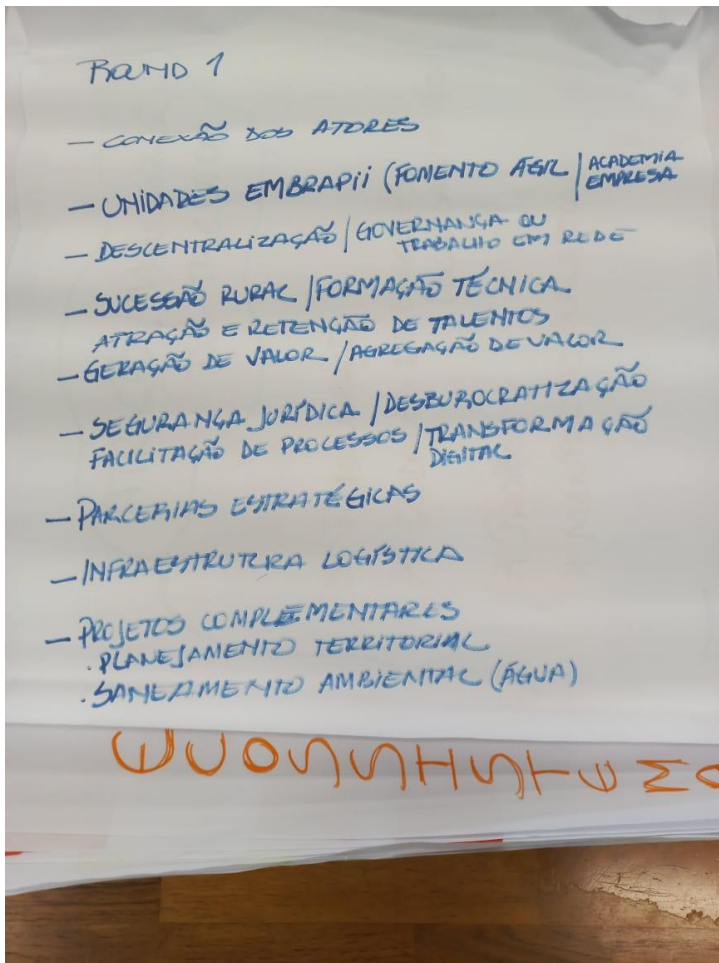 ROUND 1
- CONEXÃO DOS ATORES
- UNIDADES EMBRAPii (FOMENTO ÁGIL / ACADEMIA
EMPRESA
- DESCENTRALIZAÇÃO / GOVERNANÇA OU
TRABALHO EM REDE
- SUCESSÃO RURAL / FORMAÇÃO TÉCNICA
ATRAÇÃO E RETENÇÃO DE TALENTOS
- GERAÇÃO DE VALOR / AGREGAÇÃO DE VALOR
- SEGURANÇA JURÍDICA / DESBUROCRATIZAÇÃO
FACILITAÇÃO DE PROCESSOS / TRANSFORMAÇÃO
DIGITAL
- PARCERIAS ESTRATÉGICAS
- INFRAESTRUTURA LOGÍSTICA
- PROJETOS COMPLEMENTARES
. PLANEJAMENTO TERRITORIAL
. SANEAMENTO AMBIENTAL (ÁGUA)
ECOSSISTEMA